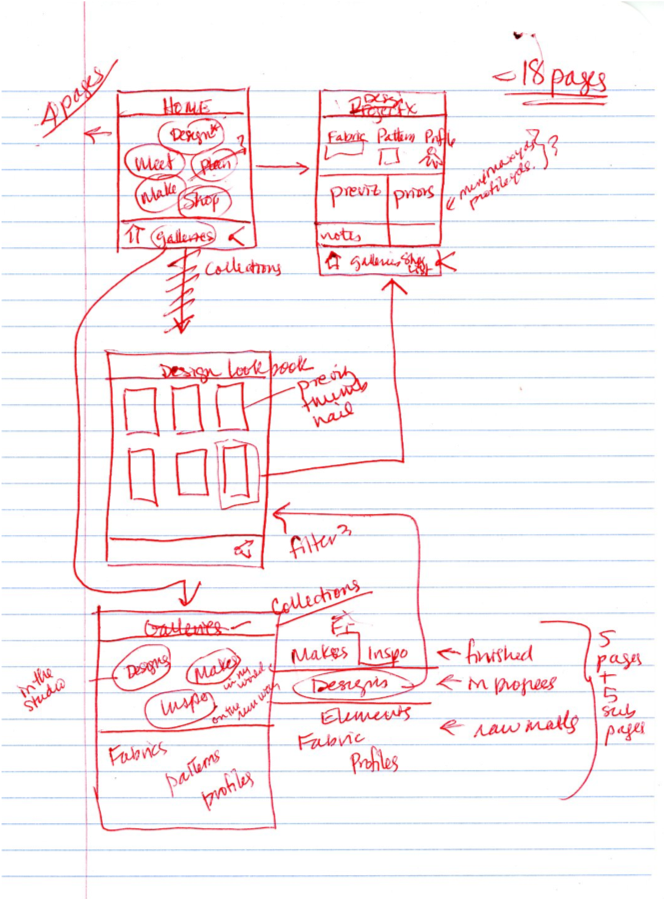 4 pages
~18 pages
HOME
Design*
Meet
Plan?
Make
Shop
galleries <
Collections
Design
Project X
Fabric Pattern Profile
previz priors
notes
galleries Shop List <
profile yds.
} 3
Design Lookbook
previz
thumb
nail
filter?
Galleries
Collections
in the
studio
Designs
Makes
in my world
Inspo
on the runway
Fabrics
patterns
profiles
Makes Inspo
← finished
Designs
← in progress
Elements
← raw matls
Fabric
Profiles
5
pages
+
5
sub
pages